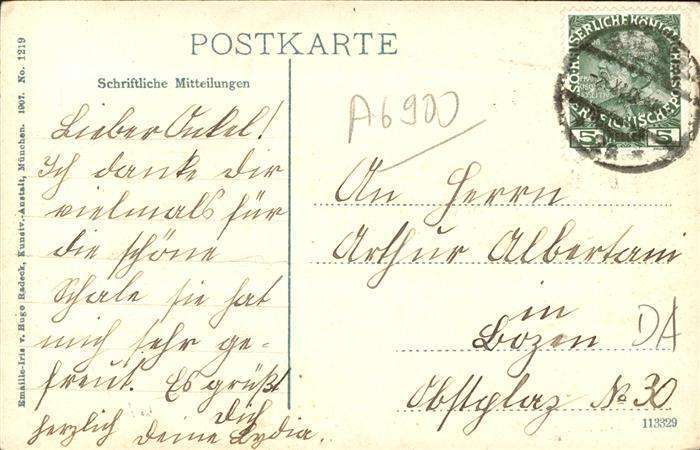 POSTKARTE
Schriftliche Mitteilungen
Lieber Onkel!
Ich danke dir
vielmals für
die schöne
Schale sie hat
mich sehr ge-
freut. Es grüßt
dich
herzlich Deine Lydia.
A6900
An Herrn
Arthur Albertani
in
Bozen
DA
Obstplaz No 30
113329
Emaille-Iris v. Hugo Radeck, Kunstv.-Anstalt, München. 1907. No. 1219
5 5